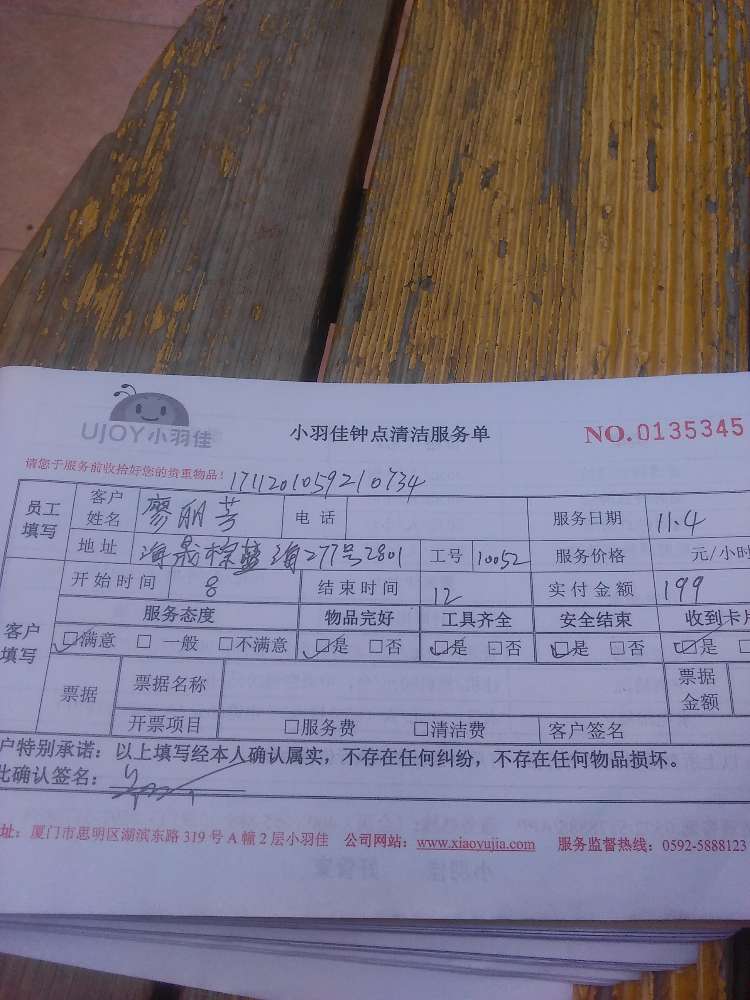 UJOY小羽佳
小羽佳钟点清洁服务单
NO.0135345
请您于服务前收拾好您的贵重物品!
1711201059210734
员工填写 客户姓名 廖丽芳 电话 服务日期 11.4
地址 海晟棕蓝海277号2801 工号 10052 服务价格 元/小时
客户填写 开始时间 8 结束时间 12 实付金额 199
服务态度 物品完好 工具齐全 安全结束 收到卡片
☑满意 □一般 □不满意 ☑是 □否 ☑是 □否 ☑是 □否 ☑是 □
票据 票据名称 票据金额
开票项目 □服务费 □清洁费 客户签名
户特别承诺:以上填写经本人确认属实,不存在任何纠纷,不存在任何物品损坏。
此确认签名:
址:厦门市思明区湖滨东路319号A幢2层小羽佳 公司网站:www.xiaoyujia.com 服务监督热线:0592-5888123